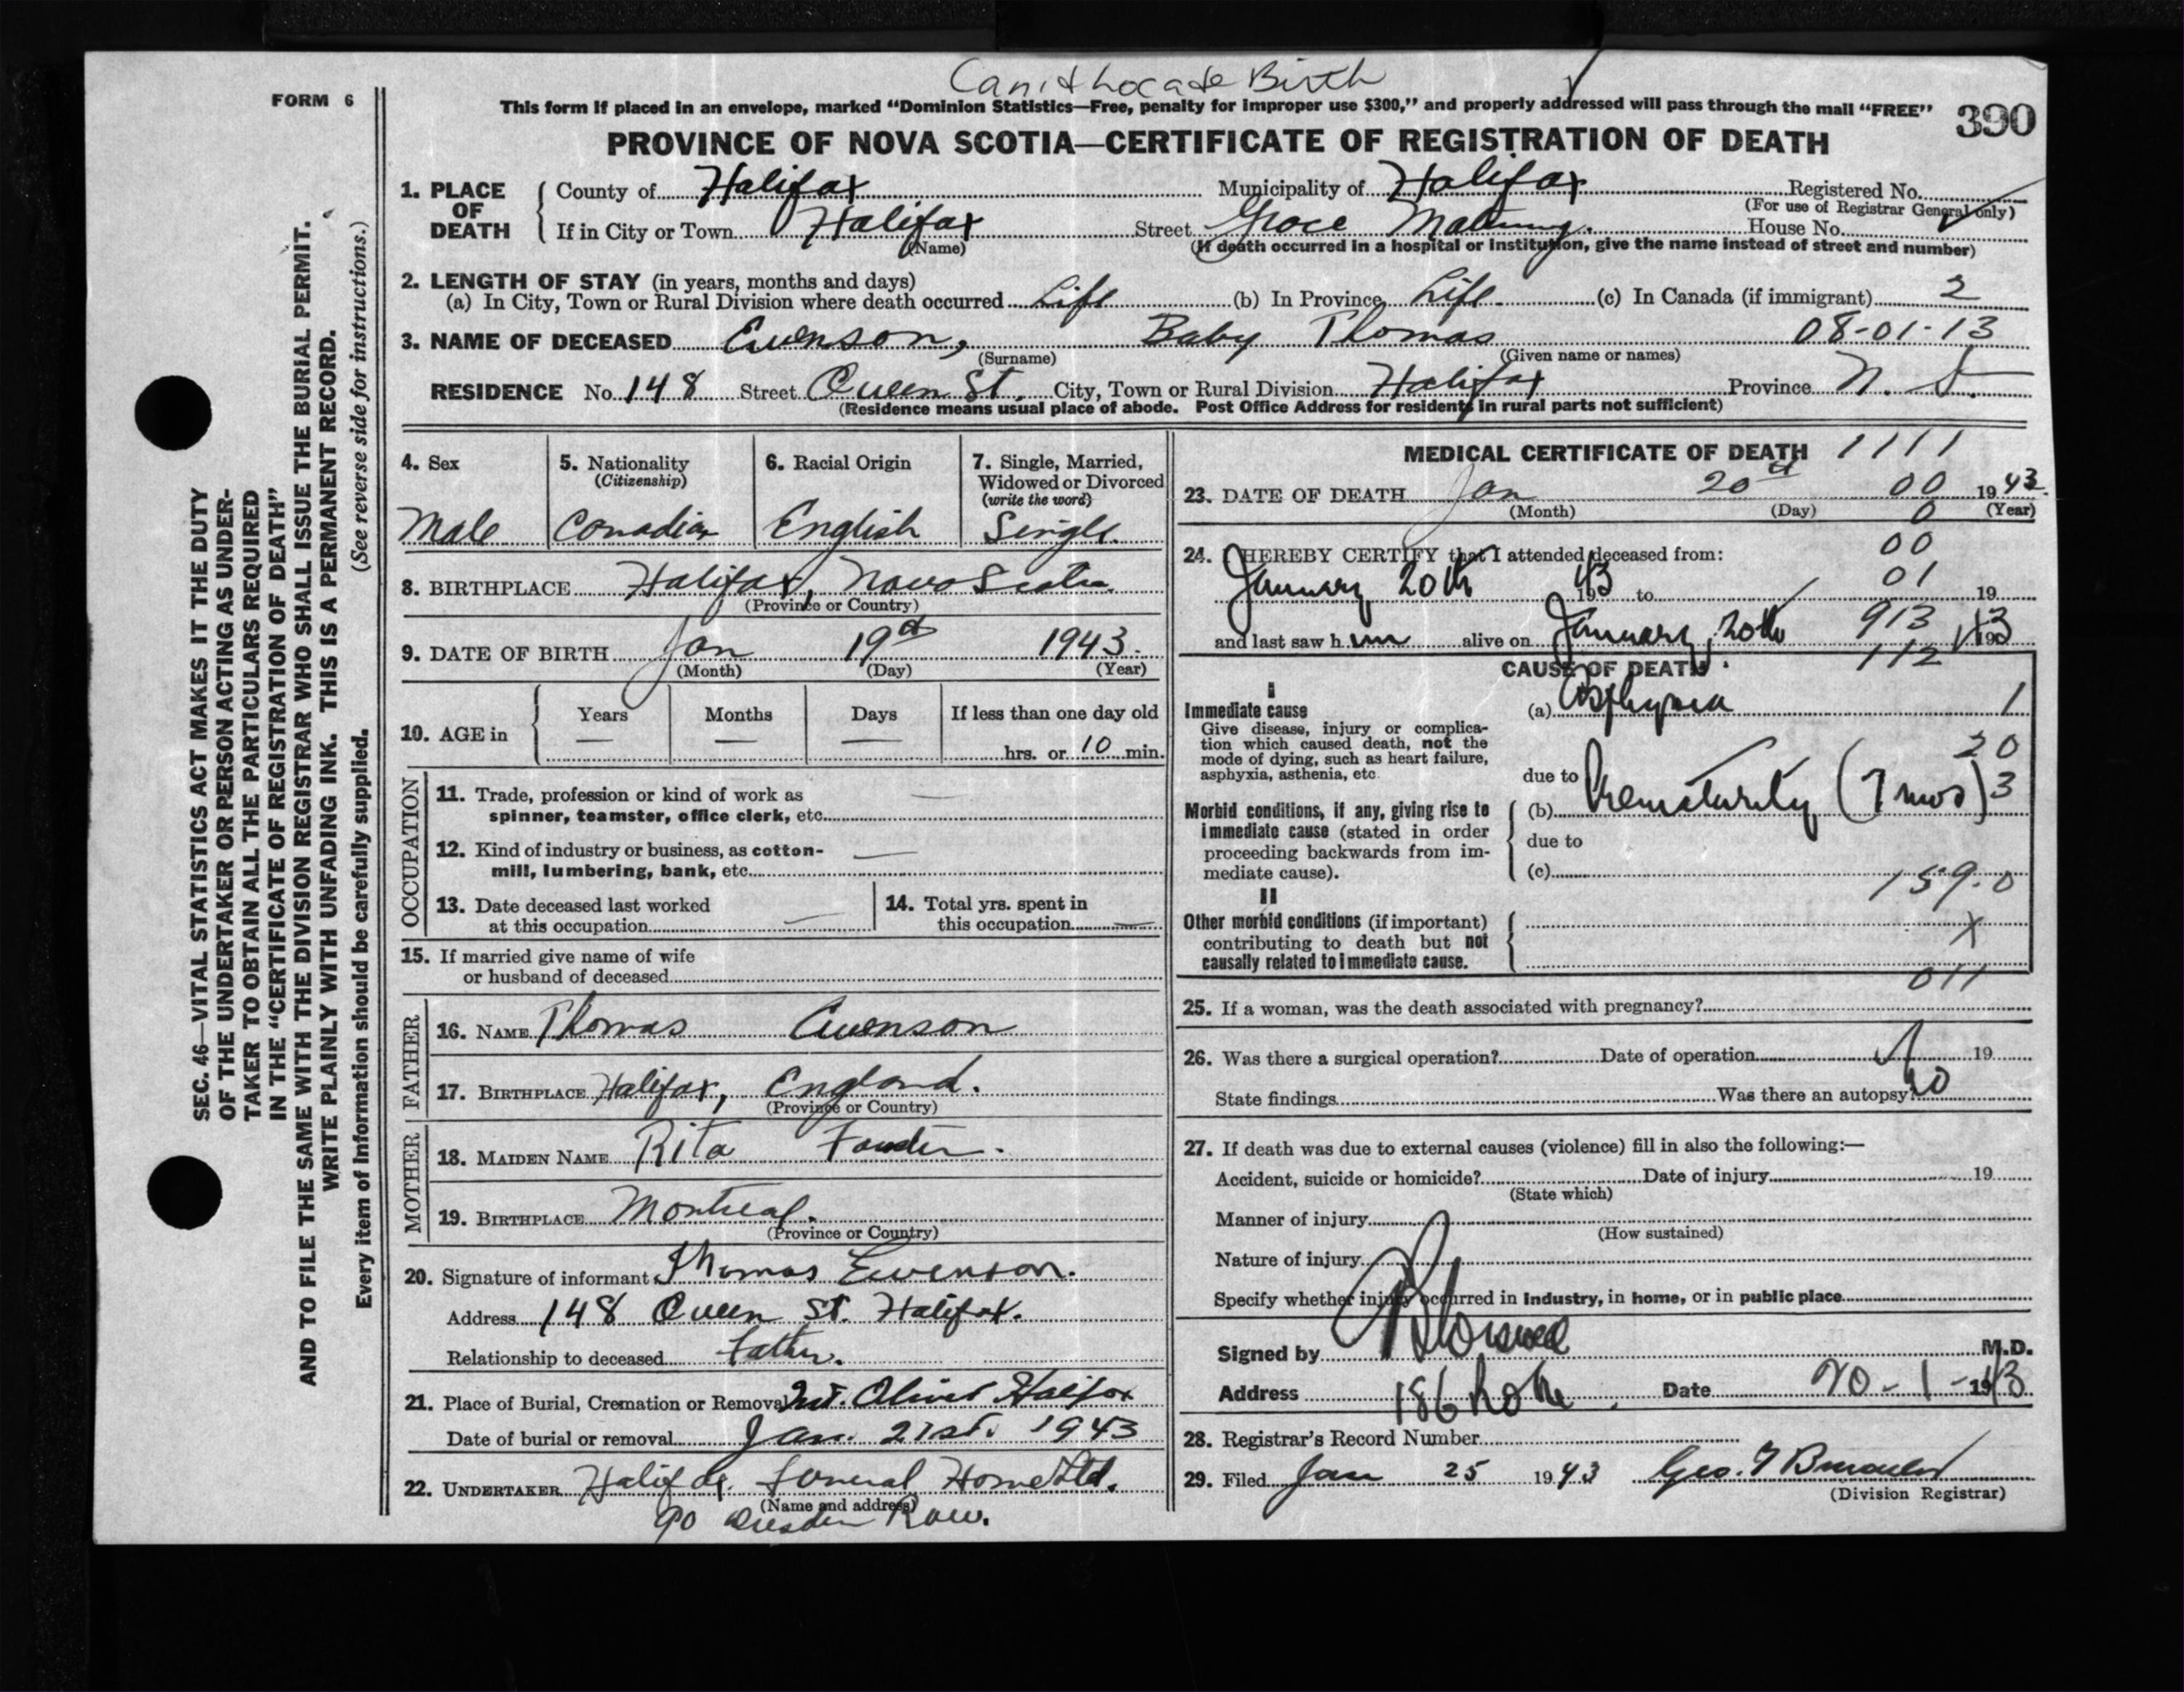 Can't Locate Birth
FORM 6
This form if placed in an envelope, marked “Dominion Statistics—Free, penalty for improper use $300,” and properly addressed will pass through the mail “FREE”
390
PROVINCE OF NOVA SCOTIA—CERTIFICATE OF REGISTRATION OF DEATH
1. PLACE OF DEATH
County of Halifax Municipality of Halifax Registered No.
(For use of Registrar General only)
If in City or Town Halifax Street Grace House No.
(Name) (If death occurred in a hospital or institution, give the name instead of street and number)
2. LENGTH OF STAY (in years, months and days)
(a) In City, Town or Rural Division where death occurred Life (b) In Province Life. (c) In Canada (if immigrant) 2
3. NAME OF DECEASED Ewenson, Baby Thomas 08-01-13
(Surname) (Given name or names)
RESIDENCE No. 148 Street Queen St. City, Town or Rural Division Halifax Province N. S.
(Residence means usual place of abode. Post Office Address for residents in rural parts not sufficient)
4. Sex 5. Nationality 6. Racial Origin 7. Single, Married,
(Citizenship) Widowed or Divorced
(write the word)
Male Canadian English Single.
8. BIRTHPLACE Halifax, Nova Scotia
(Province or Country)
9. DATE OF BIRTH Jan 19th 1943.
(Month) (Day) (Year)
10. AGE in Years Months Days If less than one day old
— — — hrs. or 10 min.
OCCUPATION
11. Trade, profession or kind of work as —
spinner, teamster, office clerk, etc.
12. Kind of industry or business, as cotton- —
mill, lumbering, bank, etc.
13. Date deceased last worked 14. Total yrs. spent in
at this occupation — this occupation —
15. If married give name of wife
or husband of deceased
FATHER
16. NAME Thomas Ewenson
17. BIRTHPLACE Halifax, England.
(Province or Country)
MOTHER
18. MAIDEN NAME Rita
19. BIRTHPLACE Montreal.
(Province or Country)
20. Signature of informant Thomas Ewenson.
Address 148 Queen St. Halifax.
Relationship to deceased Father.
21. Place of Burial, Cremation or Removal Mt. Olivet Halifax
Date of burial or removal Jan. 21st. 1943
22. UNDERTAKER Halifax Funeral Home Ltd.
(Name and address)
90 Dresden Row.
MEDICAL CERTIFICATE OF DEATH 1111
23. DATE OF DEATH Jan 20th 00 1943.
(Month) (Day) 0 (Year)
24. I HEREBY CERTIFY that I attended deceased from: 00
January 20th 1943 to 01 19
and last saw him alive on January, 20th 913 1943
CAUSE OF DEATH 112
I
Immediate cause (a) Asphyxia 1
Give disease, injury or complica-
tion which caused death, not the
mode of dying, such as heart failure,
asphyxia, asthenia, etc.
due to 20
Morbid conditions, if any, giving rise to (b) Prematurity (7 mos) 3
immediate cause (stated in order due to
proceeding backwards from im-
mediate cause). (c) 159.0
II
Other morbid conditions (if important) X
contributing to death but not
causally related to immediate cause.
011
25. If a woman, was the death associated with pregnancy?
26. Was there a surgical operation? Date of operation 19
State findings Was there an autopsy? No
27. If death was due to external causes (violence) fill in also the following:—
Accident, suicide or homicide? Date of injury 19
(State which)
Manner of injury
(How sustained)
Nature of injury
Specify whether injury occurred in industry, in home, or in public place
Signed by M.D.
Address 186 Date 20-1-1943
28. Registrar's Record Number
29. Filed Jan 25 1943 Geo.
(Division Registrar)
SEC. 46—VITAL STATISTICS ACT MAKES IT THE DUTY
OF THE UNDERTAKER OR PERSON ACTING AS UNDER-
TAKER TO OBTAIN ALL THE PARTICULARS REQUIRED
IN THE “CERTIFICATE OF REGISTRATION OF DEATH”
AND TO FILE THE SAME WITH THE DIVISION REGISTRAR WHO SHALL ISSUE THE BURIAL PERMIT.
WRITE PLAINLY WITH UNFADING INK. THIS IS A PERMANENT RECORD.
Every item of information should be carefully supplied. (See reverse side for instructions.)